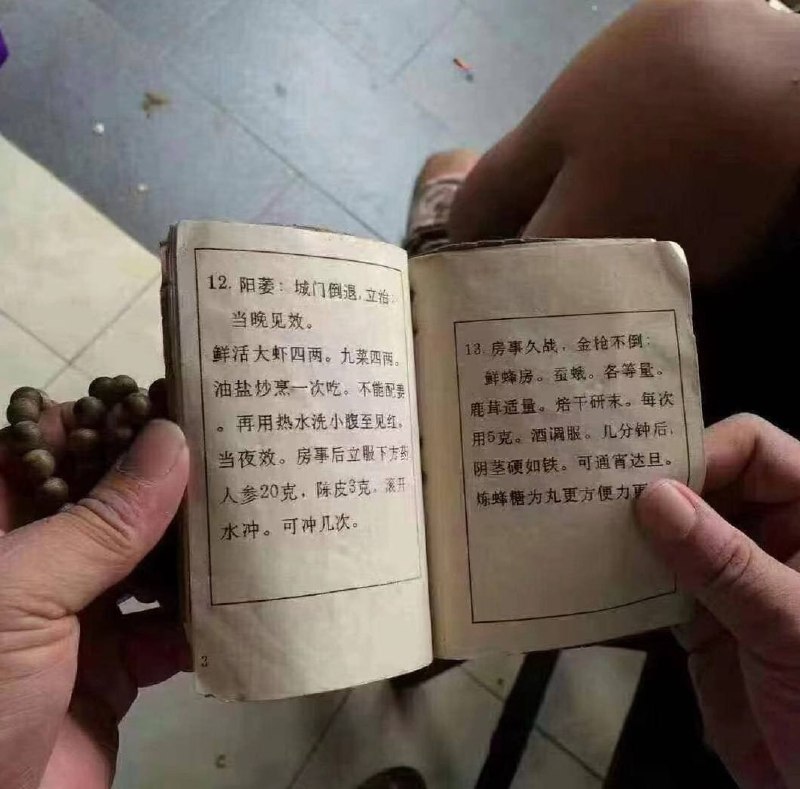 12. 阳萎：城门倒退,立治：
当晚见效。
鲜活大虾四两。九菜四两。
油盐炒烹一次吃。不能配姜
。再用热水洗小腹至见红。
当夜效。房事后立服下方药
人参20克，陈皮3克，滚开
水冲。可冲几次。
3
13. 房事久战，金枪不倒：
鲜蜂房。蚕蛾。各等量。
鹿茸适量。焙干研末。每次
用5克。酒调服。几分钟后，
阴茎硬如铁。可通宵达旦。
炼蜂糖为丸更方便力